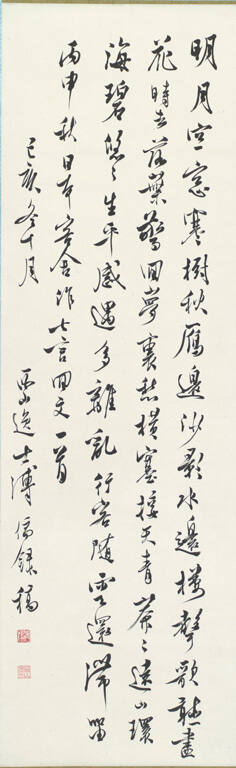 明月空窗寒樹秋雁邊沙影水邊樓聲歌聽盡
花時去落葉驚回夢裏愁橫塞接天青莽々遠山環
海碧悠々生平感遇多離亂行客隨雲還滯留
丙申秋日本客舍作七言回文一首
己亥冬十月 西山逸士溥儒錄稿